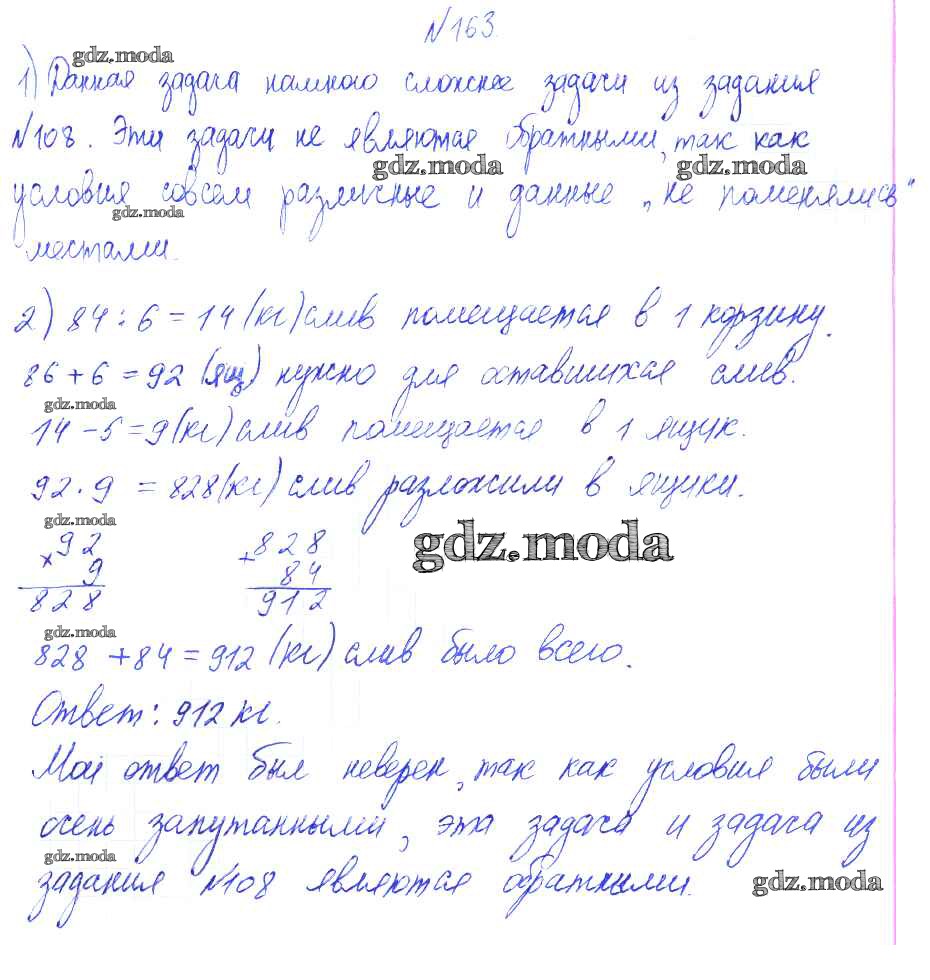 №163.
gdz.moda
1) Данная задача намного сложнее задачи из задания
№108. Эти задачи не являются обратными, так как
gdz.moda gdz.moda
условия совсем различные и данные „не поменялись"
gdz.moda
местами.
2) 84 : 6 = 14 (кг) слив помещается в 1 корзину.
86 + 6 = 92 (ящ) нужно для оставшихся слив.
gdz.moda
14 - 5 = 9 (кг) слив помещается в 1 ящик.
92 · 9 = 828 (кг) слив разложили в ящики.
gdz.moda
× 92 + 828
9 84
828 912
gdz.moda
gdz.moda
828 + 84 = 912 (кг) слив было всего.
Ответ: 912 кг.
Мой ответ был неверен, так как условия были
очень запутанными, эта задача и задача из
gdz.moda
задания №108 являются обратными.
gdz.moda